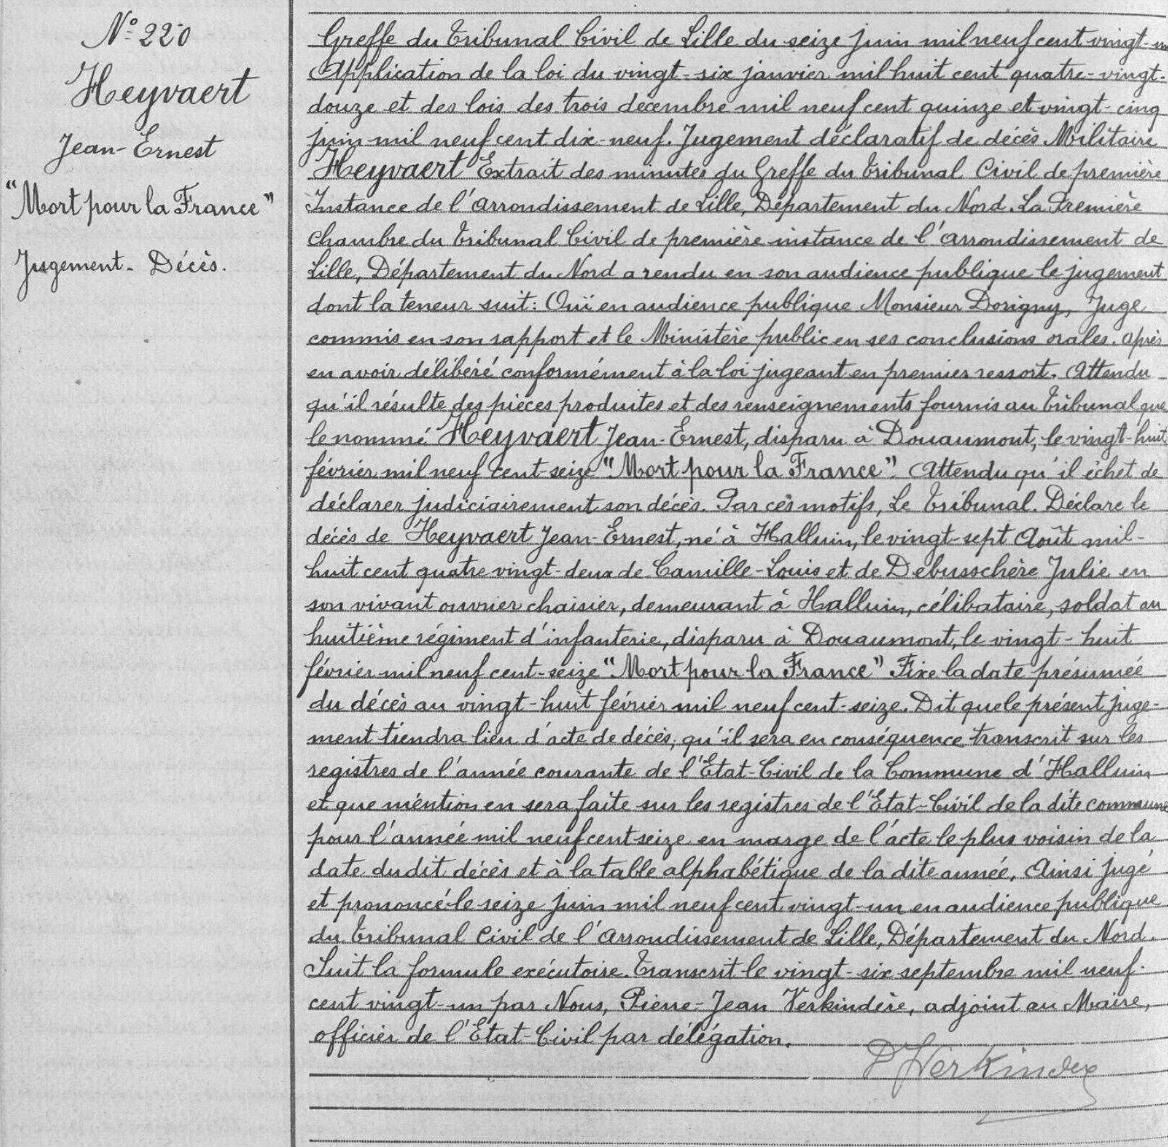 N° 220
Heyvaert
Jean-Ernest
"Mort pour la France"
Jugement. Décès.
Greffe du Tribunal Civil de Lille du seize juin mil neuf cent vingt-un
Application de la loi du vingt-six janvier mil huit cent quatre-vingt-
douze et des lois des trois décembre mil neuf cent quinze et vingt-cinq
juin mil neuf cent dix-neuf. Jugement déclaratif de décès Militaire
Heyvaert Extrait des minutes du Greffe du Tribunal Civil de première
Instance de l'arrondissement de Lille, Département du Nord. La Première
chambre du Tribunal Civil de première instance de l'arrondissement de
Lille, Département du Nord a rendu en son audience publique le jugement
dont la teneur suit: Ouï en audience publique Monsieur Dorigny, Juge
commis en son rapport et le Ministère public en ses conclusions orales. Après
en avoir délibéré conformément à la loi jugeant en premier ressort. Attendu
qu'il résulte des pièces produites et des renseignements fournis au Tribunal que
le nommé Heyvaert Jean-Ernest, disparu à Douaumont, le vingt-huit
février mil neuf cent-seize "Mort pour la France". Attendu qu'il échet de
déclarer judiciairement son décès. Par ces motifs, Le Tribunal. Déclare le
décès de Heyvaert Jean-Ernest, né à Halluin, le vingt-sept Août mil-
huit cent quatre vingt-deux de Camille-Louis et de Debusschère Julie en
son vivant ouvrier chaisier, demeurant à Halluin, célibataire, soldat au
huitième régiment d'infanterie, disparu à Douaumont, le vingt-huit
février mil neuf cent-seize "Mort pour la France" Fixe la date présumée
du décès au vingt-huit février mil neuf cent-seize. Dit que le présent juge-
ment tiendra lieu d'acte de décès, qu'il sera en conséquence transcrit sur les
registres de l'année courante de l'Etat-Civil de la Commune d'Halluin
et que mention en sera faite sur les registres de l'Etat-Civil de la dite commune
pour l'année mil neuf cent seize en marge de l'acte le plus voisin de la
date du dit décès et à la table alphabétique de la dite année. Ainsi jugé
et prononcé le seize juin mil neuf cent vingt-un en audience publique
du Tribunal Civil de l'arrondissement de Lille, Département du Nord
Suit la formule exécutoire. Transcrit le vingt-six septembre mil neuf-
cent vingt-un par Nous, Pierre-Jean Verkindère, adjoint au Maire,
officier de l'Etat-Civil par délégation.
P Verkindere